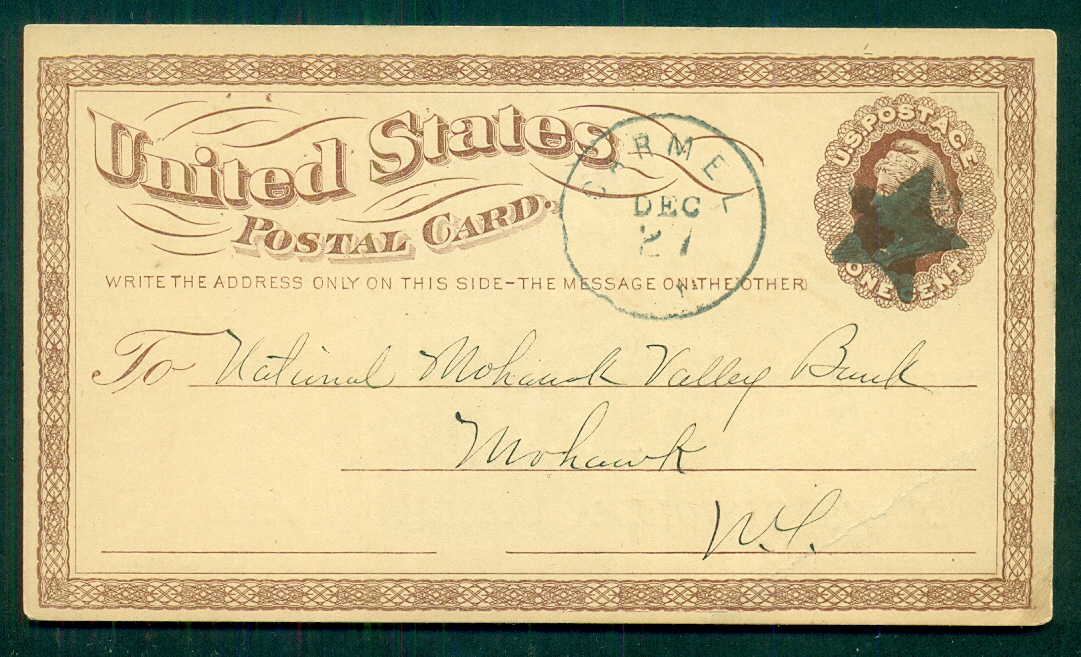 United States
POSTAL CARD.
CARMEL
DEC
27
U.S. POSTAGE
ONE CENT
WRITE THE ADDRESS ONLY ON THIS SIDE-THE MESSAGE ON THE OTHER
To National Mohawk Valley Bank
Mohawk
N.Y.